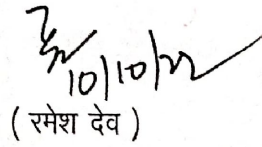 10/10/22
( रमेश देव )